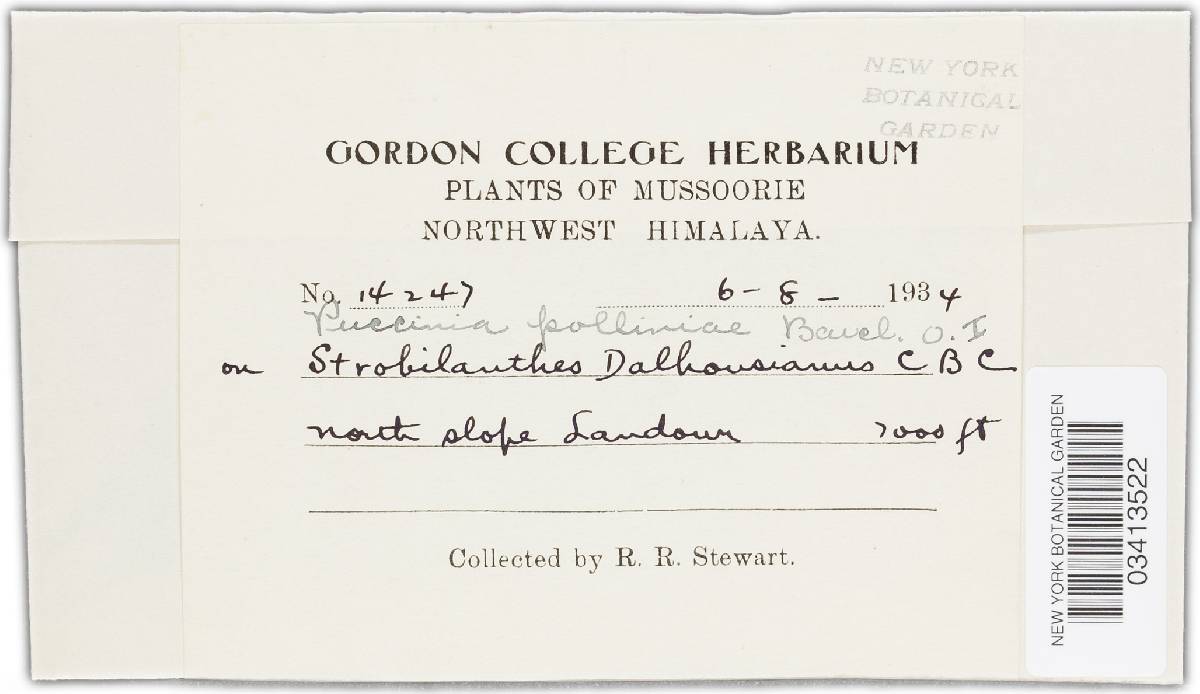 NEW YORK
BOTANICAL
GARDEN
GORDON COLLEGE HERBARIUM
PLANTS OF MUSSOORIE
NORTHWEST HIMALAYA.
No. 14247 6-8- 1934
Puccinia polliniae Barcl. O. I
on Strobilanthes Dalhousianus C B C
north slope Landour 7000 ft
Collected by R. R. Stewart.
NEW YORK BOTANICAL GARDEN
03413522